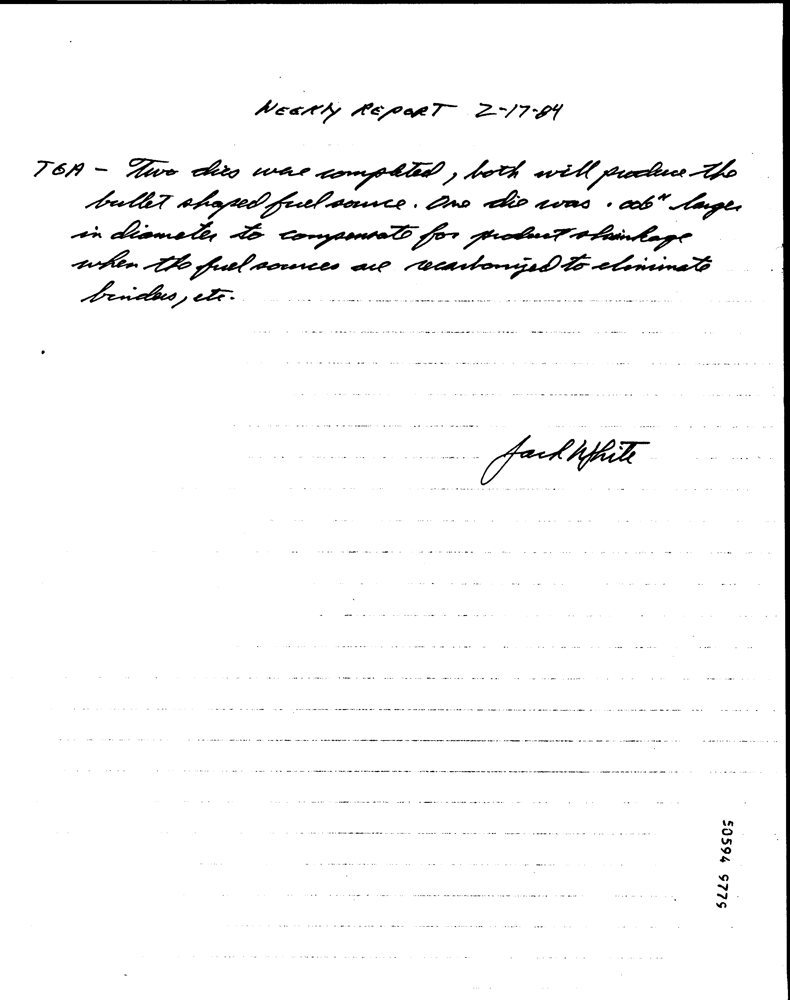 WEEKLY REPORT 2-17-84
TGA - Two dies were completed, both will produce the
bullet shaped fuel source. One die was .006" larger
in diameter to compensate for product shrinkage
when the fuel sources are recarbonized to eliminate
binders, etc.
Jack White
50594 9775